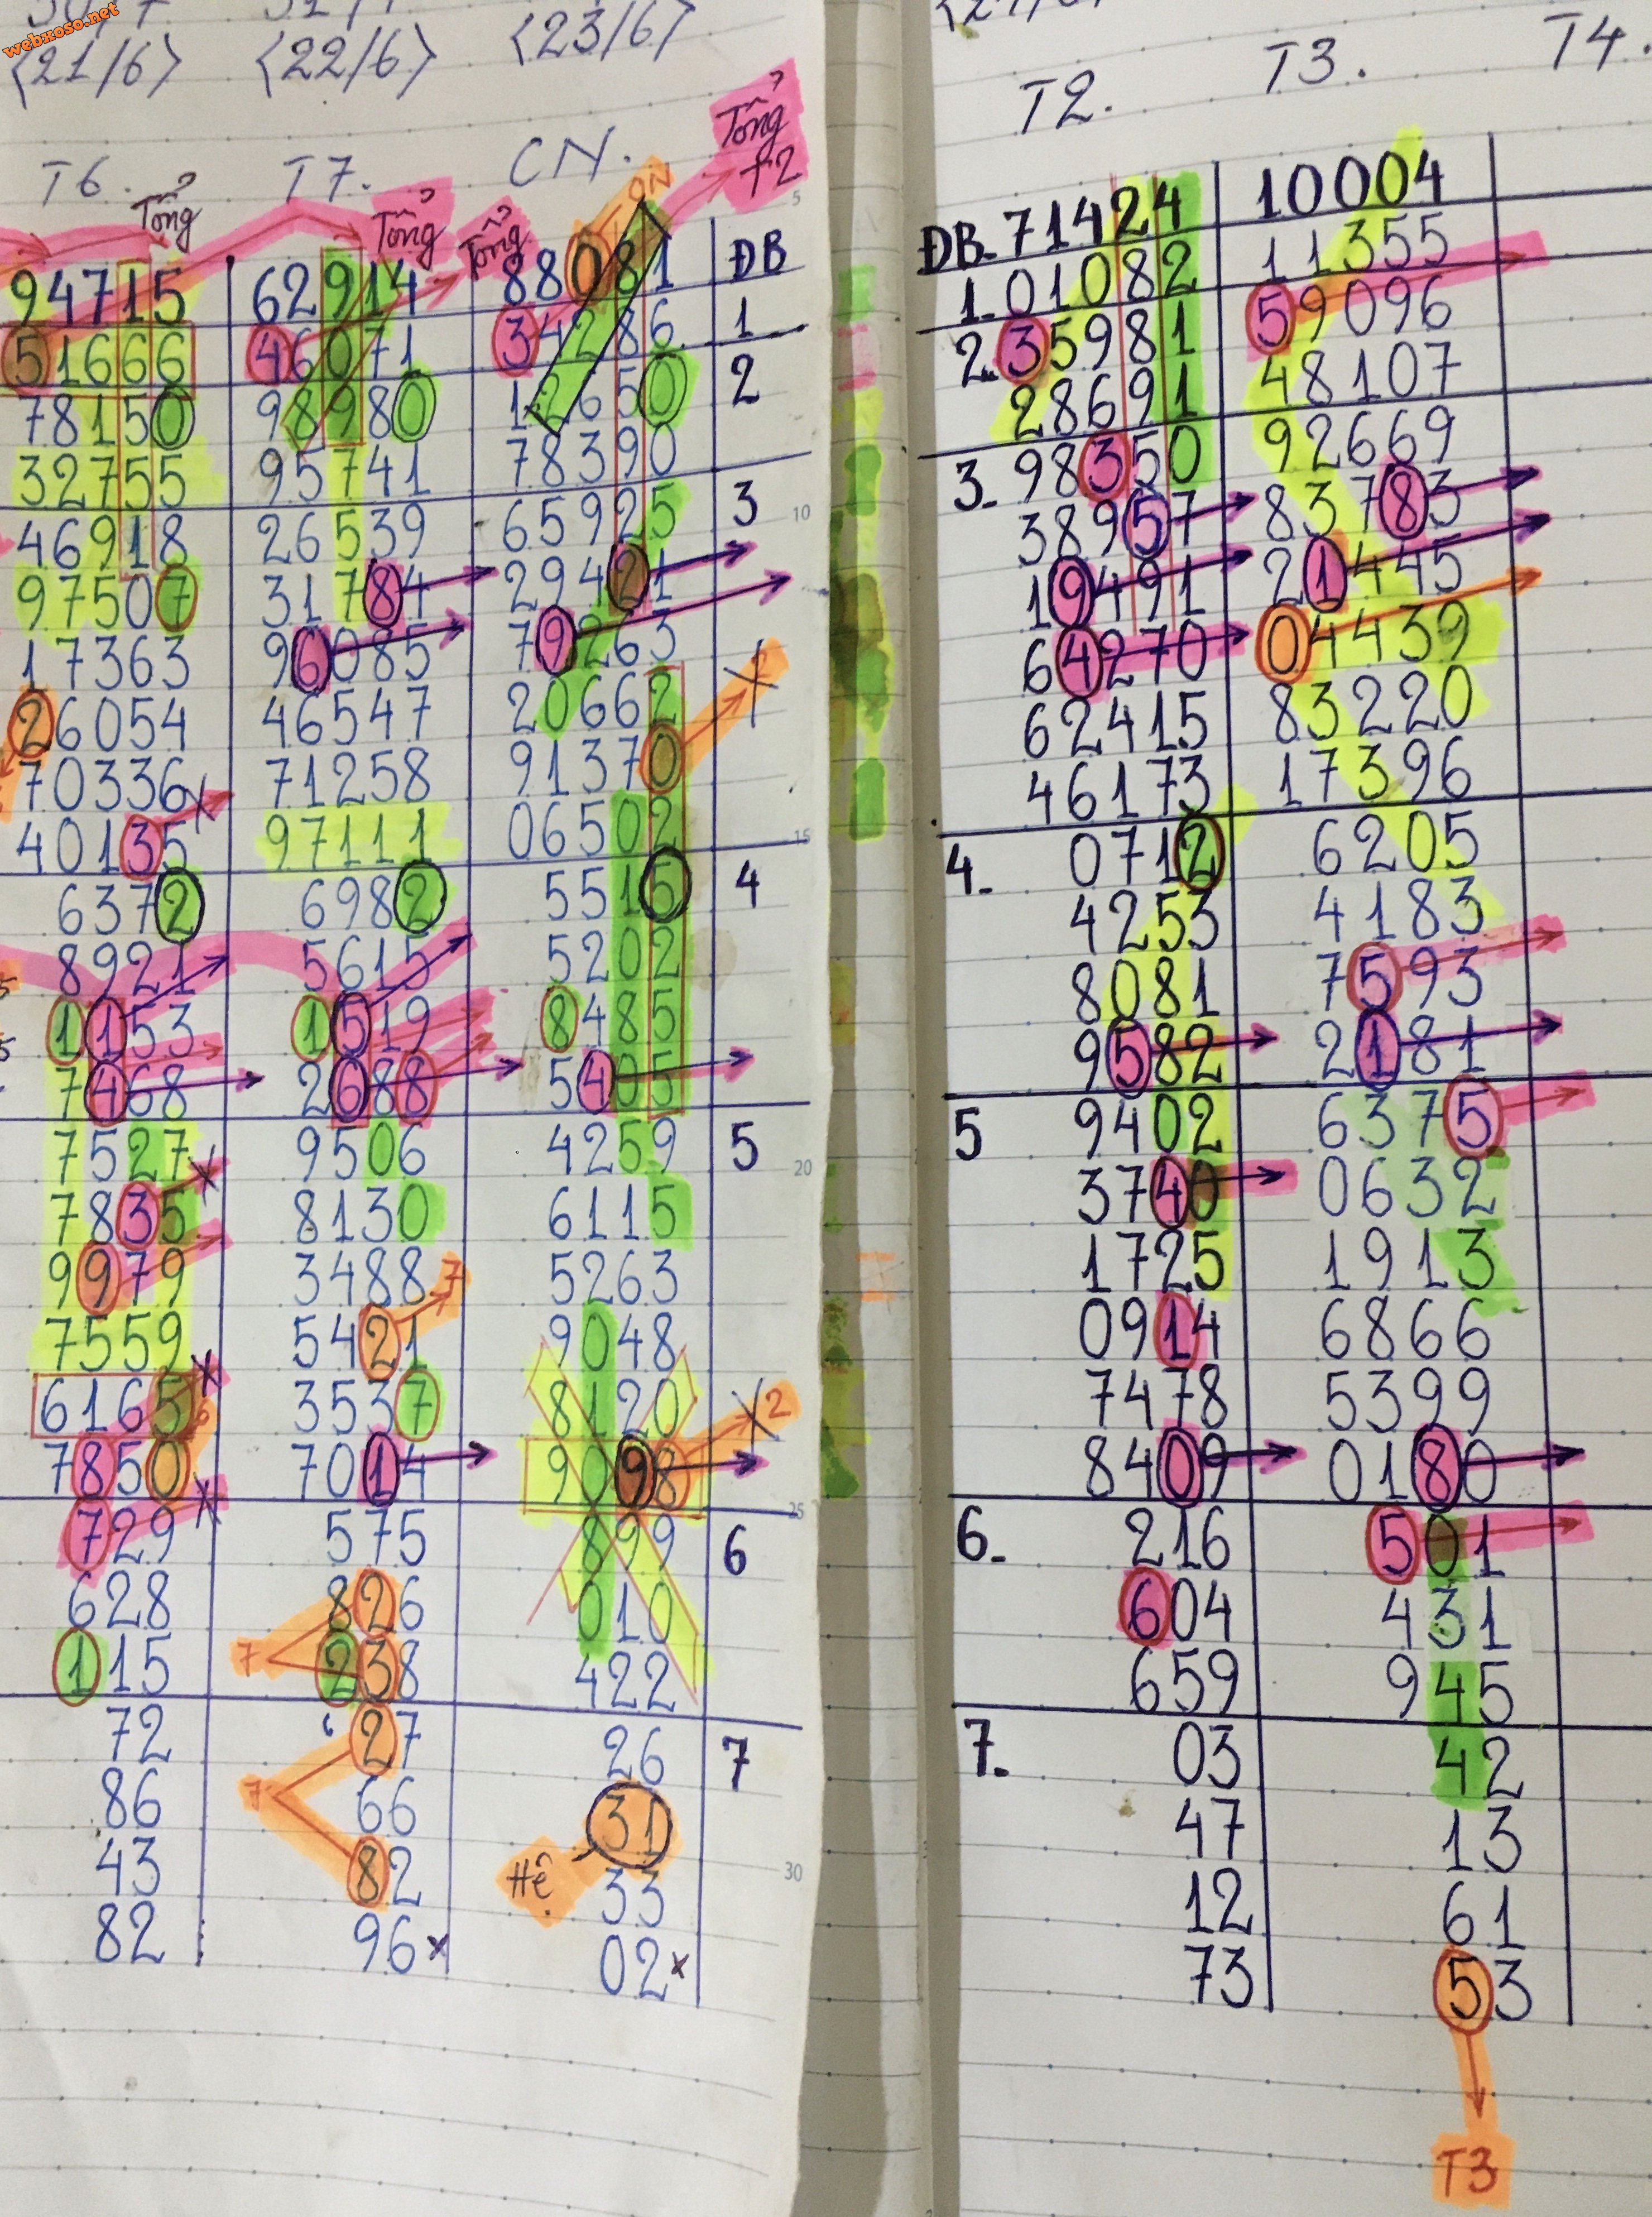 webxoso.net
<21/6> <22/6> <23/6>
T6. T7. CN. Tổng +2
Tổng Tổng Tổng ON
94715 62914 88081 ĐB
51666 46071 34286 1
78150 98980 12650 2
32755 95741 78390
46918 26539 65925 3
97507 31784 29421
17363 96085 79263
26054 46547 20662
70336 71258 91370
40135 97111 06502
6372 6982 5516 4
8921 5615 5202
1153 1519 8485
7468 2688 5405
7527 9506 4259 5
7835 8130 6115
9979 3488 5263
7559 5421 7 9048
6165 3537 8120
7850 7014 9098 2
729 575 899 6
628 826 010
115 7 238 422
72 27 26 7
86 7 66 31
43 82 Hệ 33
82 96x 02x
5
10
15
20
25
30
T2. T3. T4.
ĐB. 71424 10004
1. 01082 11355
2. 35981 59096
28691 48107
3. 98350 92669
38957 83783
19491 21445
64270 04439
62415 83220
46173 17396
4. 0712 6205
4253 4183
8081 7593
9582 2181
5 9402 6375
3740 0632
1725 1913
0914 6866
7478 5399
8409 0180
6. 216 501
604 431
659 945
7. 03 42
47 13
12 61
73 53
T3